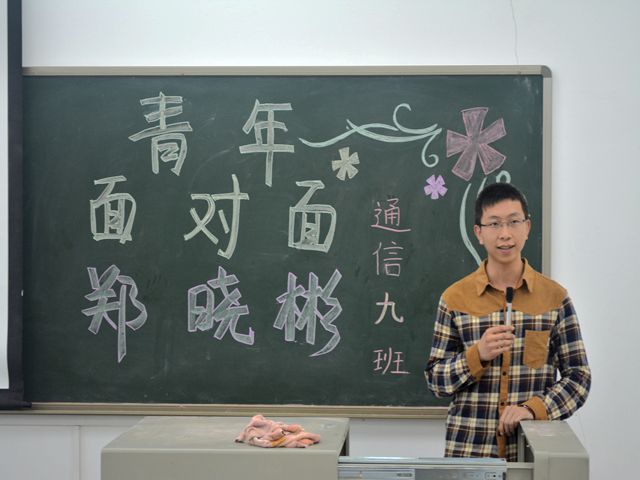 青年
面对面
郑晓彬
通信九班